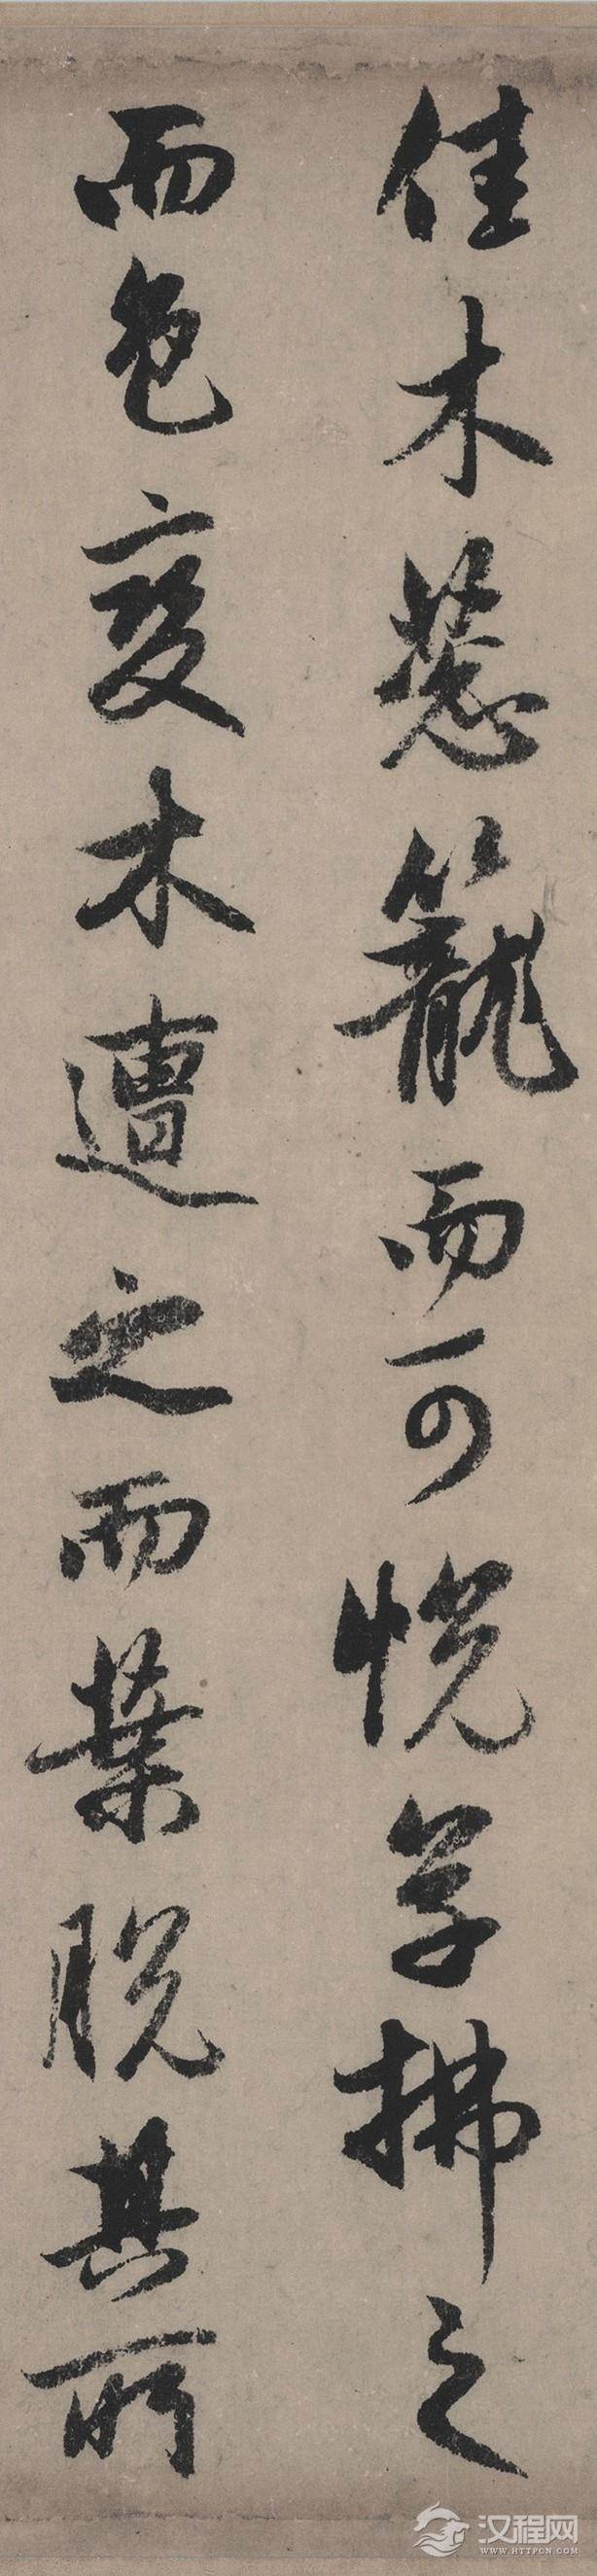 佳木葱籠而可悦草拂之
而色变木遭之而葉脱其所
汉程网
WWW.HTTPCN.COM